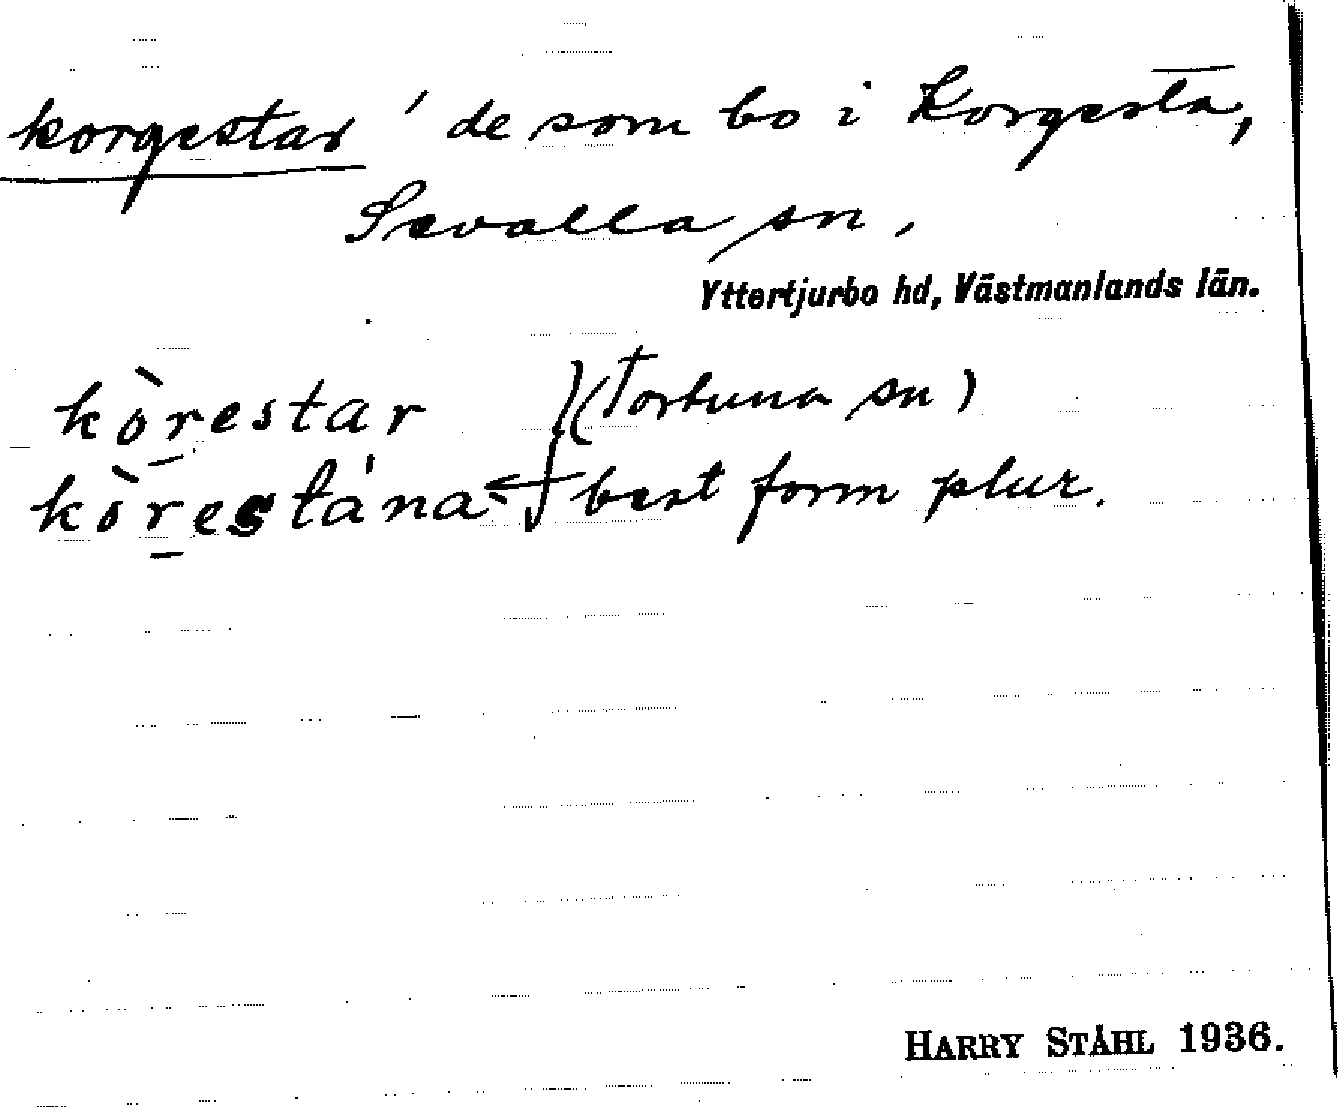 korgestar 'de som bo i Korgesta,
Sevalla sn,
Yttertjurbo hd, Västmanlands län.
kòrestar } (Tortuna sn)
kòrestána ← best form plur.
HARRY STÅHL 1936.